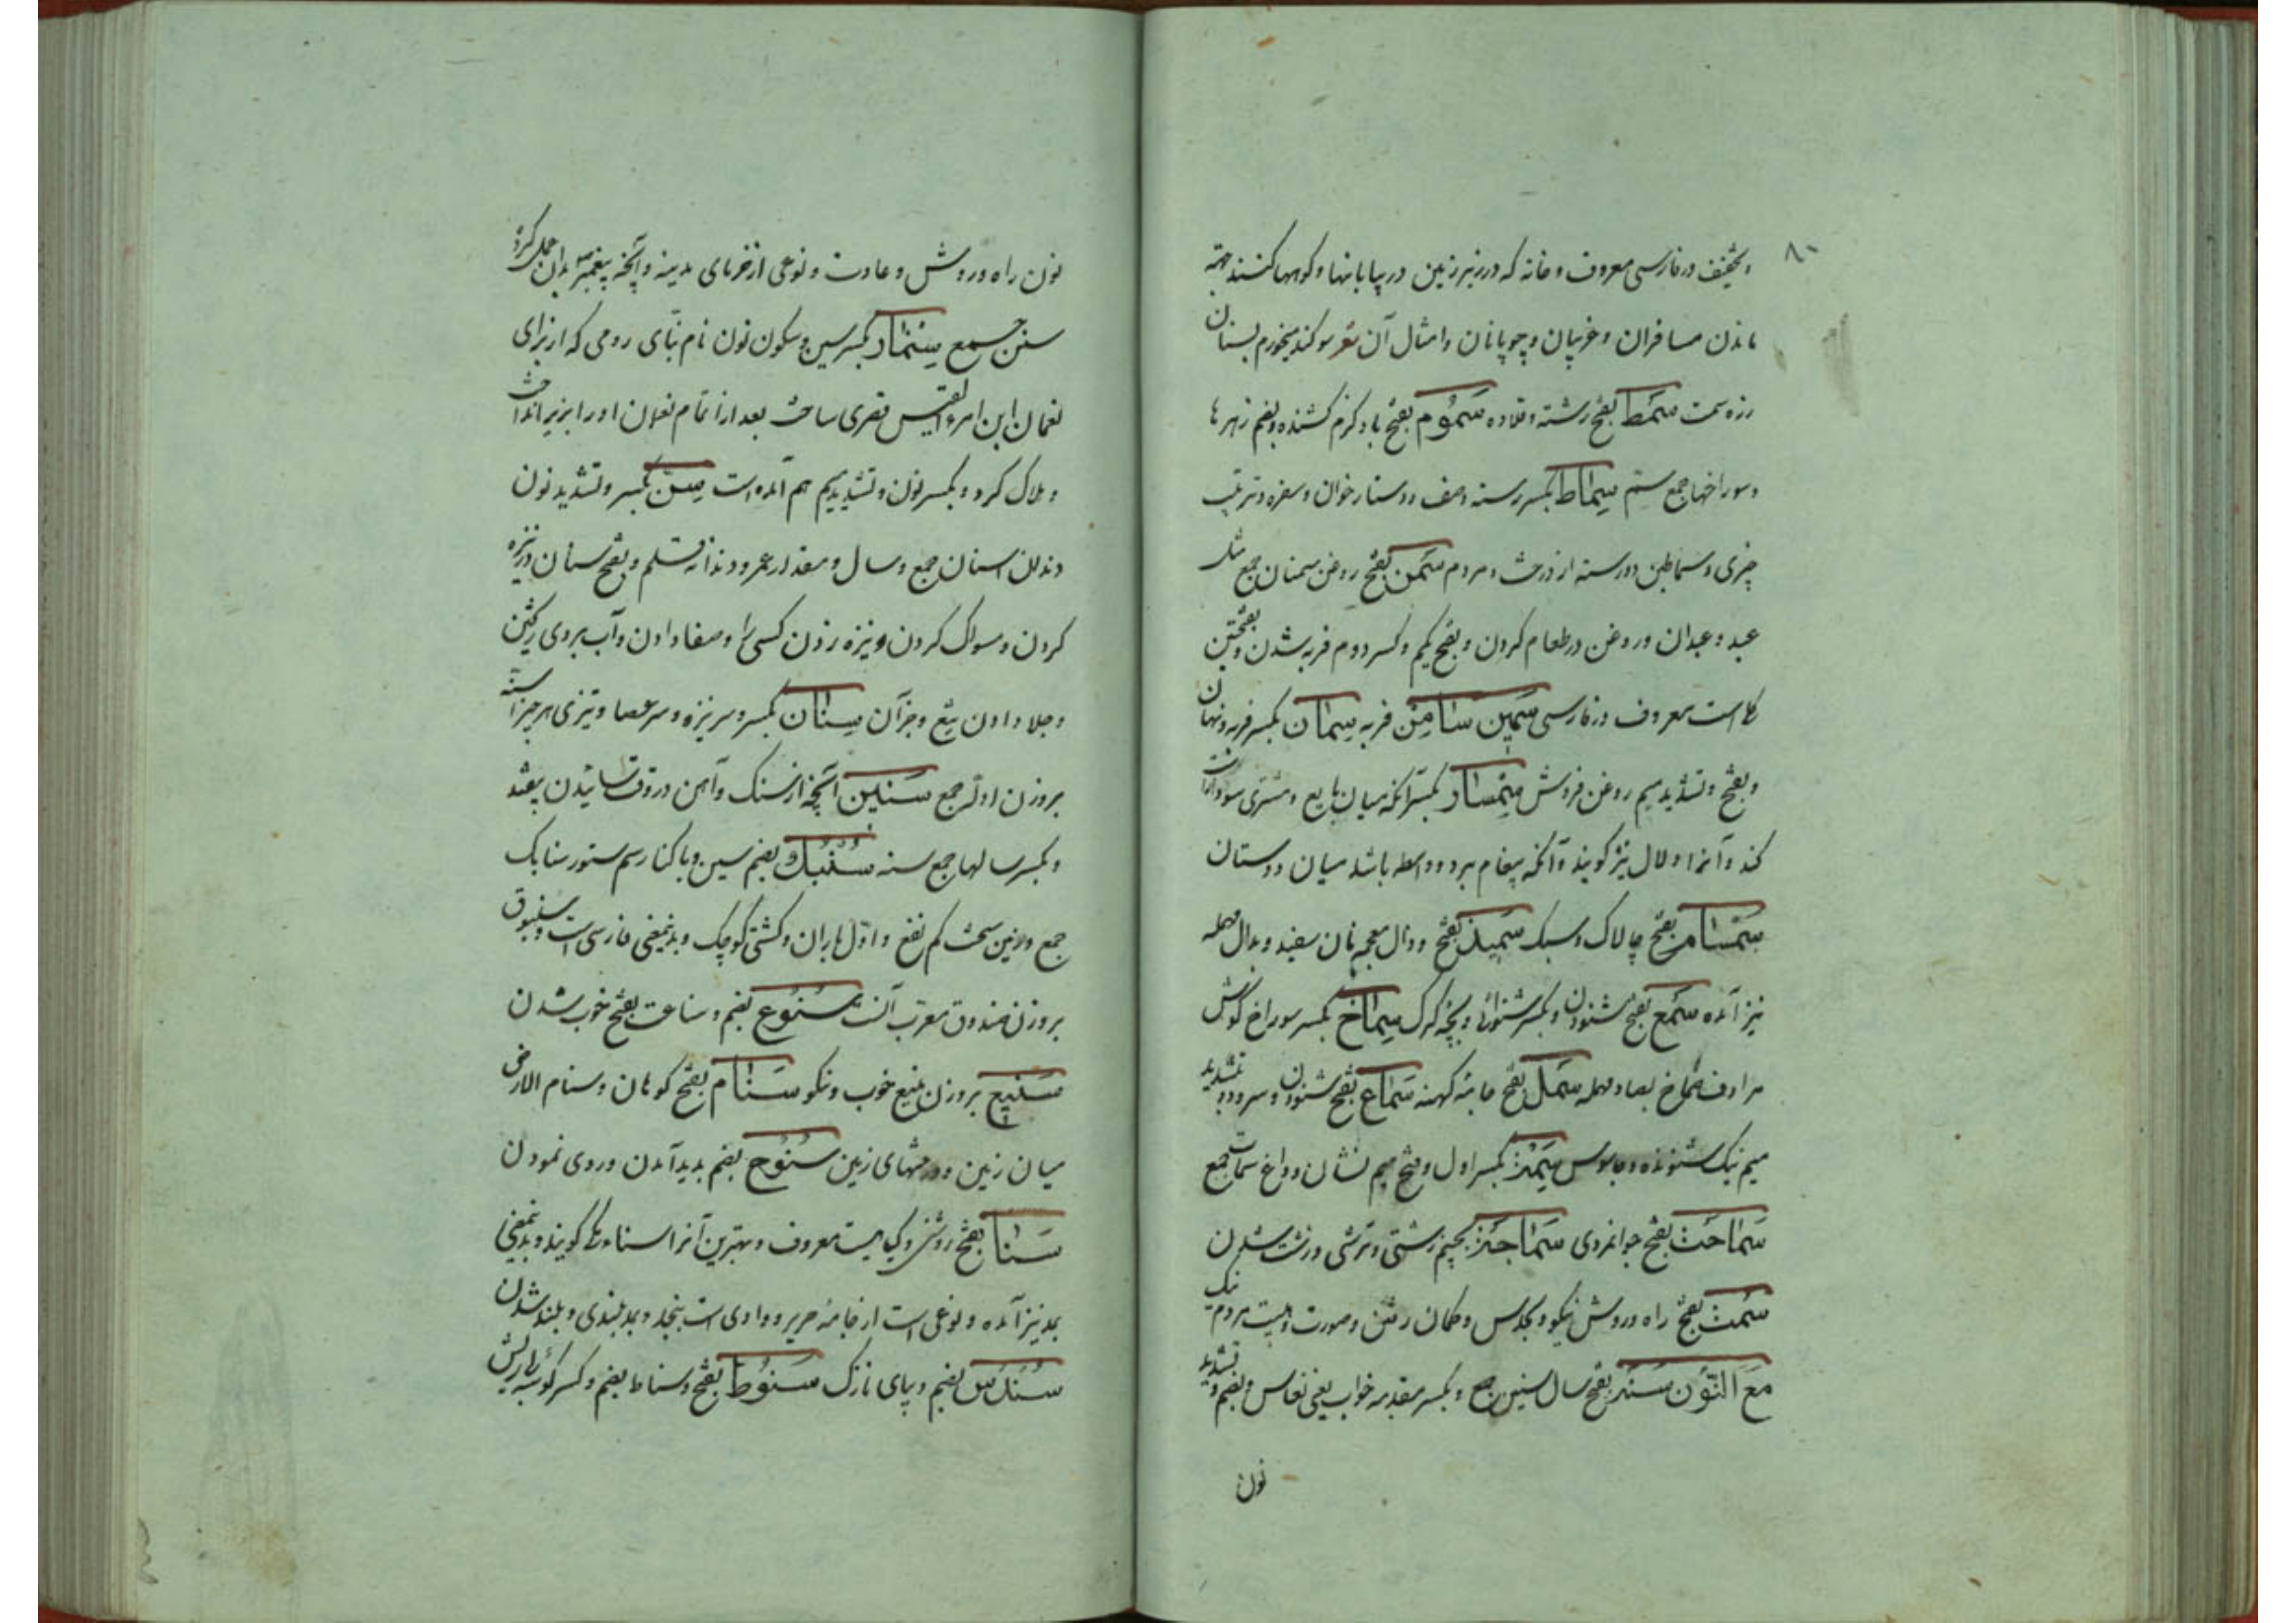 ۸۰
بتخفیف در فارسی معروف و خانه که در زیر زمین در بیابانها و کوهها کنند جهة
ماندن مسافران و غریبان و چوپانان و امثال آن شعر سوکند میخورم بسنان
رزه سمت سمط بفتح رشته و قلاده سموم بفتح باد کرم کشنده و بضم زهرها
و سوراخها جمع سم سماط بکسر رسته و صف و دستارخوان و سفره و ترتیب
چیزی و سماطین دو رسته از درخت و مردم سمن بفتح روغن سمنان جمع مثل
عبد و عبدان و روغن در طعام کردن و بفتح یکم و کسر دوم فربه شدن و بفتحتین
کلی است معروف در فارسی سمین سامن فربه سمان بکسر فربه و نهان
و بفتح و تشدید میم روغن فروش سمسار بکسر آنکه میان بایع و مشتری سودا راست
کند و آنرا دلال نیز کویند و آنکه پیغام برد و واسطه باشد میان دوستان
سمسام بفتح چالاک و سبک سمیذ بفتح و ذال معجمه نان سفید و بدال مهمله
نیز آمده سمع بفتح شنودن و بکسر شنوائی و بچه کرک سماخ بکسر سوراخ کوش
مرادف صماخ بصاد مهمله سمل بفتح جامه کهنه سماع بفتح شنودن و سرود و بتشدید
میم نیک شنونده و جاسوس سمة بکسر اول و فتح میم نشان و داغ سمات جمع
سماحت بفتح جوانمردی سماجة بجیم زشتی و ترشی و زشت شدن
سمت بفتح راه و روش نیکو و بحدس و کمان رفتن و صورت و هیئت مردم نیک
مع النون سنة بفتح سال سنین جمع و بکسر مقدمه خواب یعنی نعاس و بضم و تشدید
نون
نون راه و روش و عادت و نوعی از خرمای مدینه و آنچه پیغمبر بدان عمل کرده
سنن جمع سنمار بکسر سین و سکون نون نام بنّای رومی که از برای
نعمان ابن امرء القیس قصری ساخت بعد از اتمام نعمان او را بزیر انداخت
و هلاک کرد و بکسر نون و تشدید میم هم آمده است سن بکسر و تشدید نون
دندان اسنان جمع و سال و مقدار عمر و دندانه قلم و بفتح سنان در نیزه
کردن و مسواک کردن و نیزه زدن کسی را و صفا دادن و آب بروی ریختن
و جلا دادن تیغ و جز آن سنان بکسر و سر نیزه و سر عصا و تیزی هر چیز اسنة
بروزن ادله جمع سنین آنچه از سنک و آهن در وقت سائیدن بیفتد
و بکسر سالها جمع سنه سنبک بضم سین و با کنار سم ستور سنابک
جمع و زمین سخت کم نفع و اول باران و کشتی کوچک و بدینمعنی فارسی است و سنبوق
بروزن صندوق معرب آنست سنوع بضم و سناعت بفتح خوب شدن
سنیع بروزن منیع خوب و نکو سنام بفتح کوهان و سنام الارض
میان زمین و درختهای زمین سنوح بضم بدید آمدن و روی نمودن
سنا بفتح روشنی و کیاهیست معروف و بهترین آنرا سناء مکی کویند و بدینمعنی
بمد نیز آمده و نوعی است از جامه حریر و وادی است بنجد و بمد بلندی و بلند شدن
بضم و پای نازک سنوط بفتح و سناط بضم و کسر کوسه یا ریش